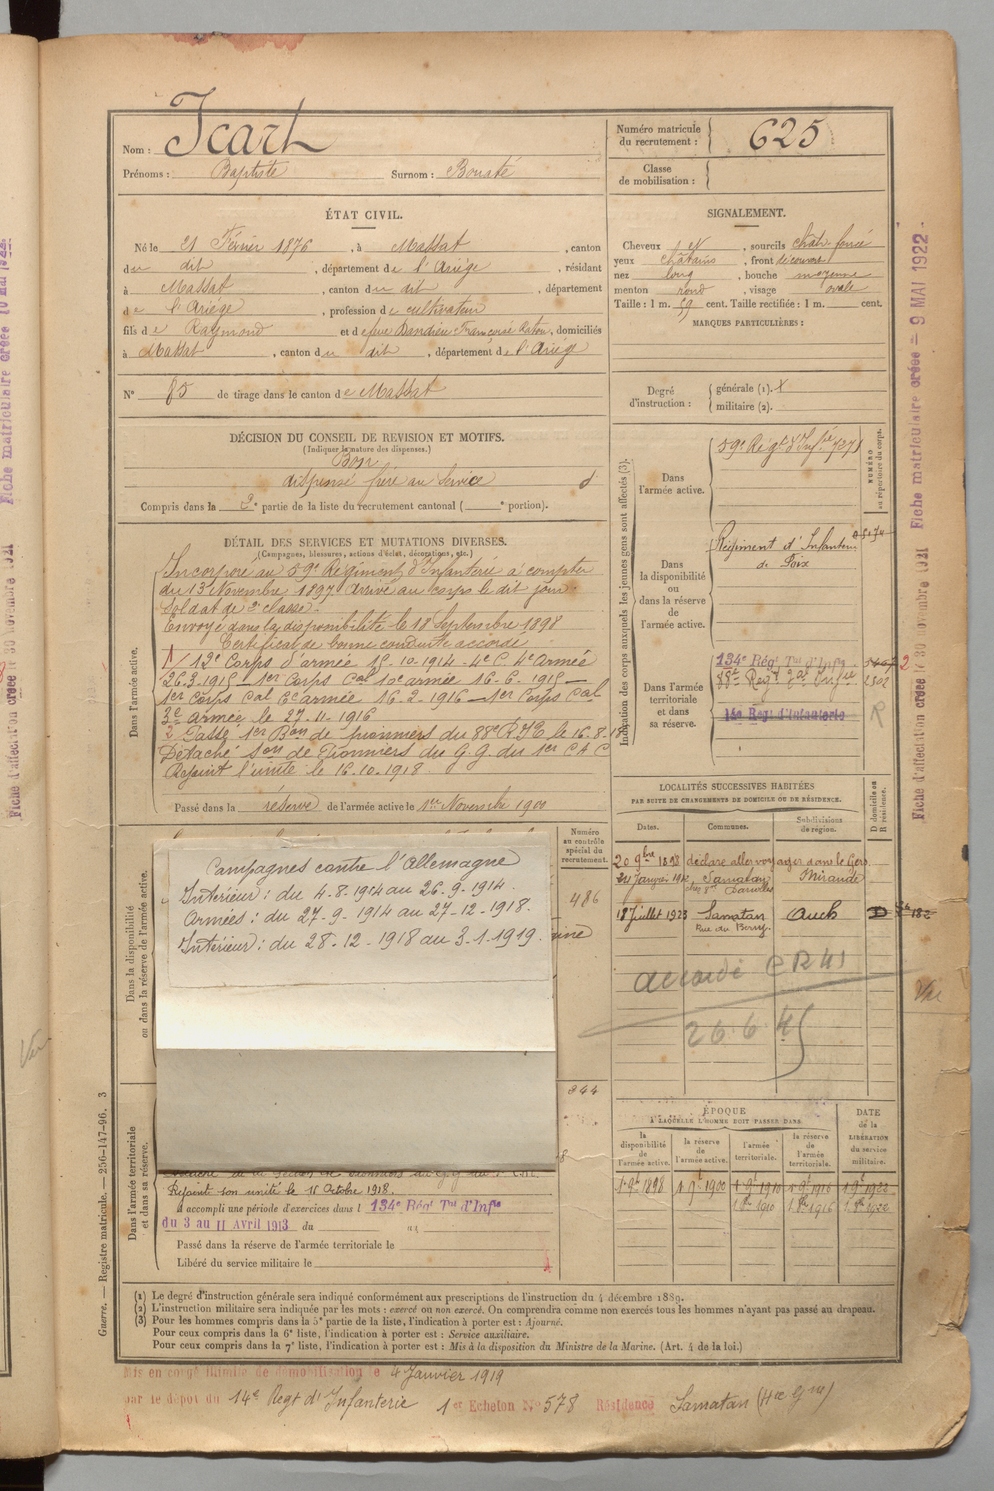 Nom : Icart
Prénoms : Baptiste Surnom : Bousté
Numéro matricule du recrutement : 625
Classe de mobilisation :
ÉTAT CIVIL.
Né le 21 Février 1876, à Massat, canton
du dit, département de l'Ariège, résidant
à Massat, canton du dit, département
de l'Ariège, profession de cultivateur
fils de Raymond et de feue Dandieu Françoise, domiciliés
à Massat, canton du dit, département de l'Ariège
N° 85 de tirage dans le canton de Massat
SIGNALEMENT.
Cheveux et, sourcils chât. foncé
yeux châtains, front découvert
nez long, bouche moyenne
menton rond, visage ovale
Taille : 1 m. 59 cent. Taille rectifiée : 1 m. cent.
MARQUES PARTICULIÈRES :
Degré d'instruction : générale (1).
militaire (2).
DÉCISION DU CONSEIL DE REVISION ET MOTIFS.
(Indiquer la nature des dispenses.)
Bon
dispensé frère au service
Compris dans la 2e partie de la liste du recrutement cantonal ( e portion).
DÉTAIL DES SERVICES ET MUTATIONS DIVERSES.
(Campagnes, blessures, actions d'éclat, décorations, etc.)
Dans l'armée active.
Incorporé au 59e Régiment d'Infanterie à compter
du 13 Novembre 1897 arrivé au corps le dit jour
Soldat de 2e classe.
Envoyé dans la disponibilité le 18 Septembre 1898
Certificat de bonne conduite accordé
1/ 12e Corps d'armée 15-10-1914 - 4e C. 4e Armée
26.3.1915 - 1er Corps Col 10e armée 16-6-1915 -
1er Corps Col 6e armée 16-2-1916 - 1er Corps Col
3e armée le 27-11-1916
Passé 1er Bon de pionniers du 88e R.I.T. le 16.8.18
Détaché Son de Pionniers du G.G. du 1er C A C
Rejoint l'unité le 16.10.1918
Passé dans la réserve de l'armée active le 1er Novembre 1900
Indication des corps auxquels les jeunes gens sont affectés (3).
NUMÉRO au répertoire du corps.
Dans l'armée active.
59e Régt d'Infrie 7271
Dans la disponibilité ou dans la réserve de l'armée active.
Régiment d'Infanterie
de Foix
Dans l'armée territoriale et dans sa réserve.
134e Régt Tal d'Infie
1302
14e Regt d'Infanterie
R
LOCALITÉS SUCCESSIVES HABITÉES
PAR SUITE DE CHANGEMENTS DE DOMICILE OU DE RÉSIDENCE.
Dates. Communes. Subdivisions de région. D domicile ou R résidence.
20 9bre 1898 déclare aller voyager dans le Gers
24 Janvier Samatan Mirande
18 Juillet 1923 Samatan Auch D
Rue du Barry.
accordé CR 41
26.6.45
Dans la disponibilité ou dans la réserve de l'armée active.
Numéro au contrôle spécial du recrutement.
486
Campagnes contre l'Allemagne
Intérieur : du 4.8.1914 au 26.9.1914.
Armées : du 27-9-1914 au 27-12-1918.
Intérieur : du 28-12-1918 au 3-1-1919.
344
Dans l'armée territoriale et dans sa réserve.
Rejoint son unité le 15 Octobre 1918.
a accompli une période d'exercices dans l 134e Régt Tal d'Infie
du 3 au 11 Avril 1913 du au
Passé dans la réserve de l'armée territoriale le
Libéré du service militaire le
ÉPOQUE
A LAQUELLE L'HOMME DOIT PASSER DANS
la disponibilité de l'armée active. la réserve de l'armée active. l'armée territoriale. la réserve de l'armée territoriale.
DATE de la LIBÉRATION du service militaire.
1 9e 1898 1 9e 1900 1 9e 1910 1 9e 1916 1 9e 1922
1 8re 1910 1 8re 1916 1 8re 1922
(1) Le degré d'instruction générale sera indiqué conformément aux prescriptions de l'instruction du 4 décembre 1889.
(2) L'instruction militaire sera indiquée par les mots : exercé ou non exercé. On comprendra comme non exercés tous les hommes n'ayant pas passé au drapeau.
(3) Pour les hommes compris dans la 5e partie de la liste, l'indication à porter est : Ajourné.
Pour ceux compris dans la 6e liste, l'indication à porter est : Service auxiliaire.
Pour ceux compris dans la 7e liste, l'indication à porter est : Mis à la disposition du Ministre de la Marine. (Art. 4 de la loi.)
Mis en congé illimité de démobilisation le 4 Janvier 1919
par le dépôt du 14e Regt d'Infanterie 1er Echelon N° 578 Résidence Samatan
Guerre. — Registre matricule. — 256-147-96. 3
Fiche d'affectation créée le 30 novembre 1921 Fiche matriculaire créée - 9 MAI 1922